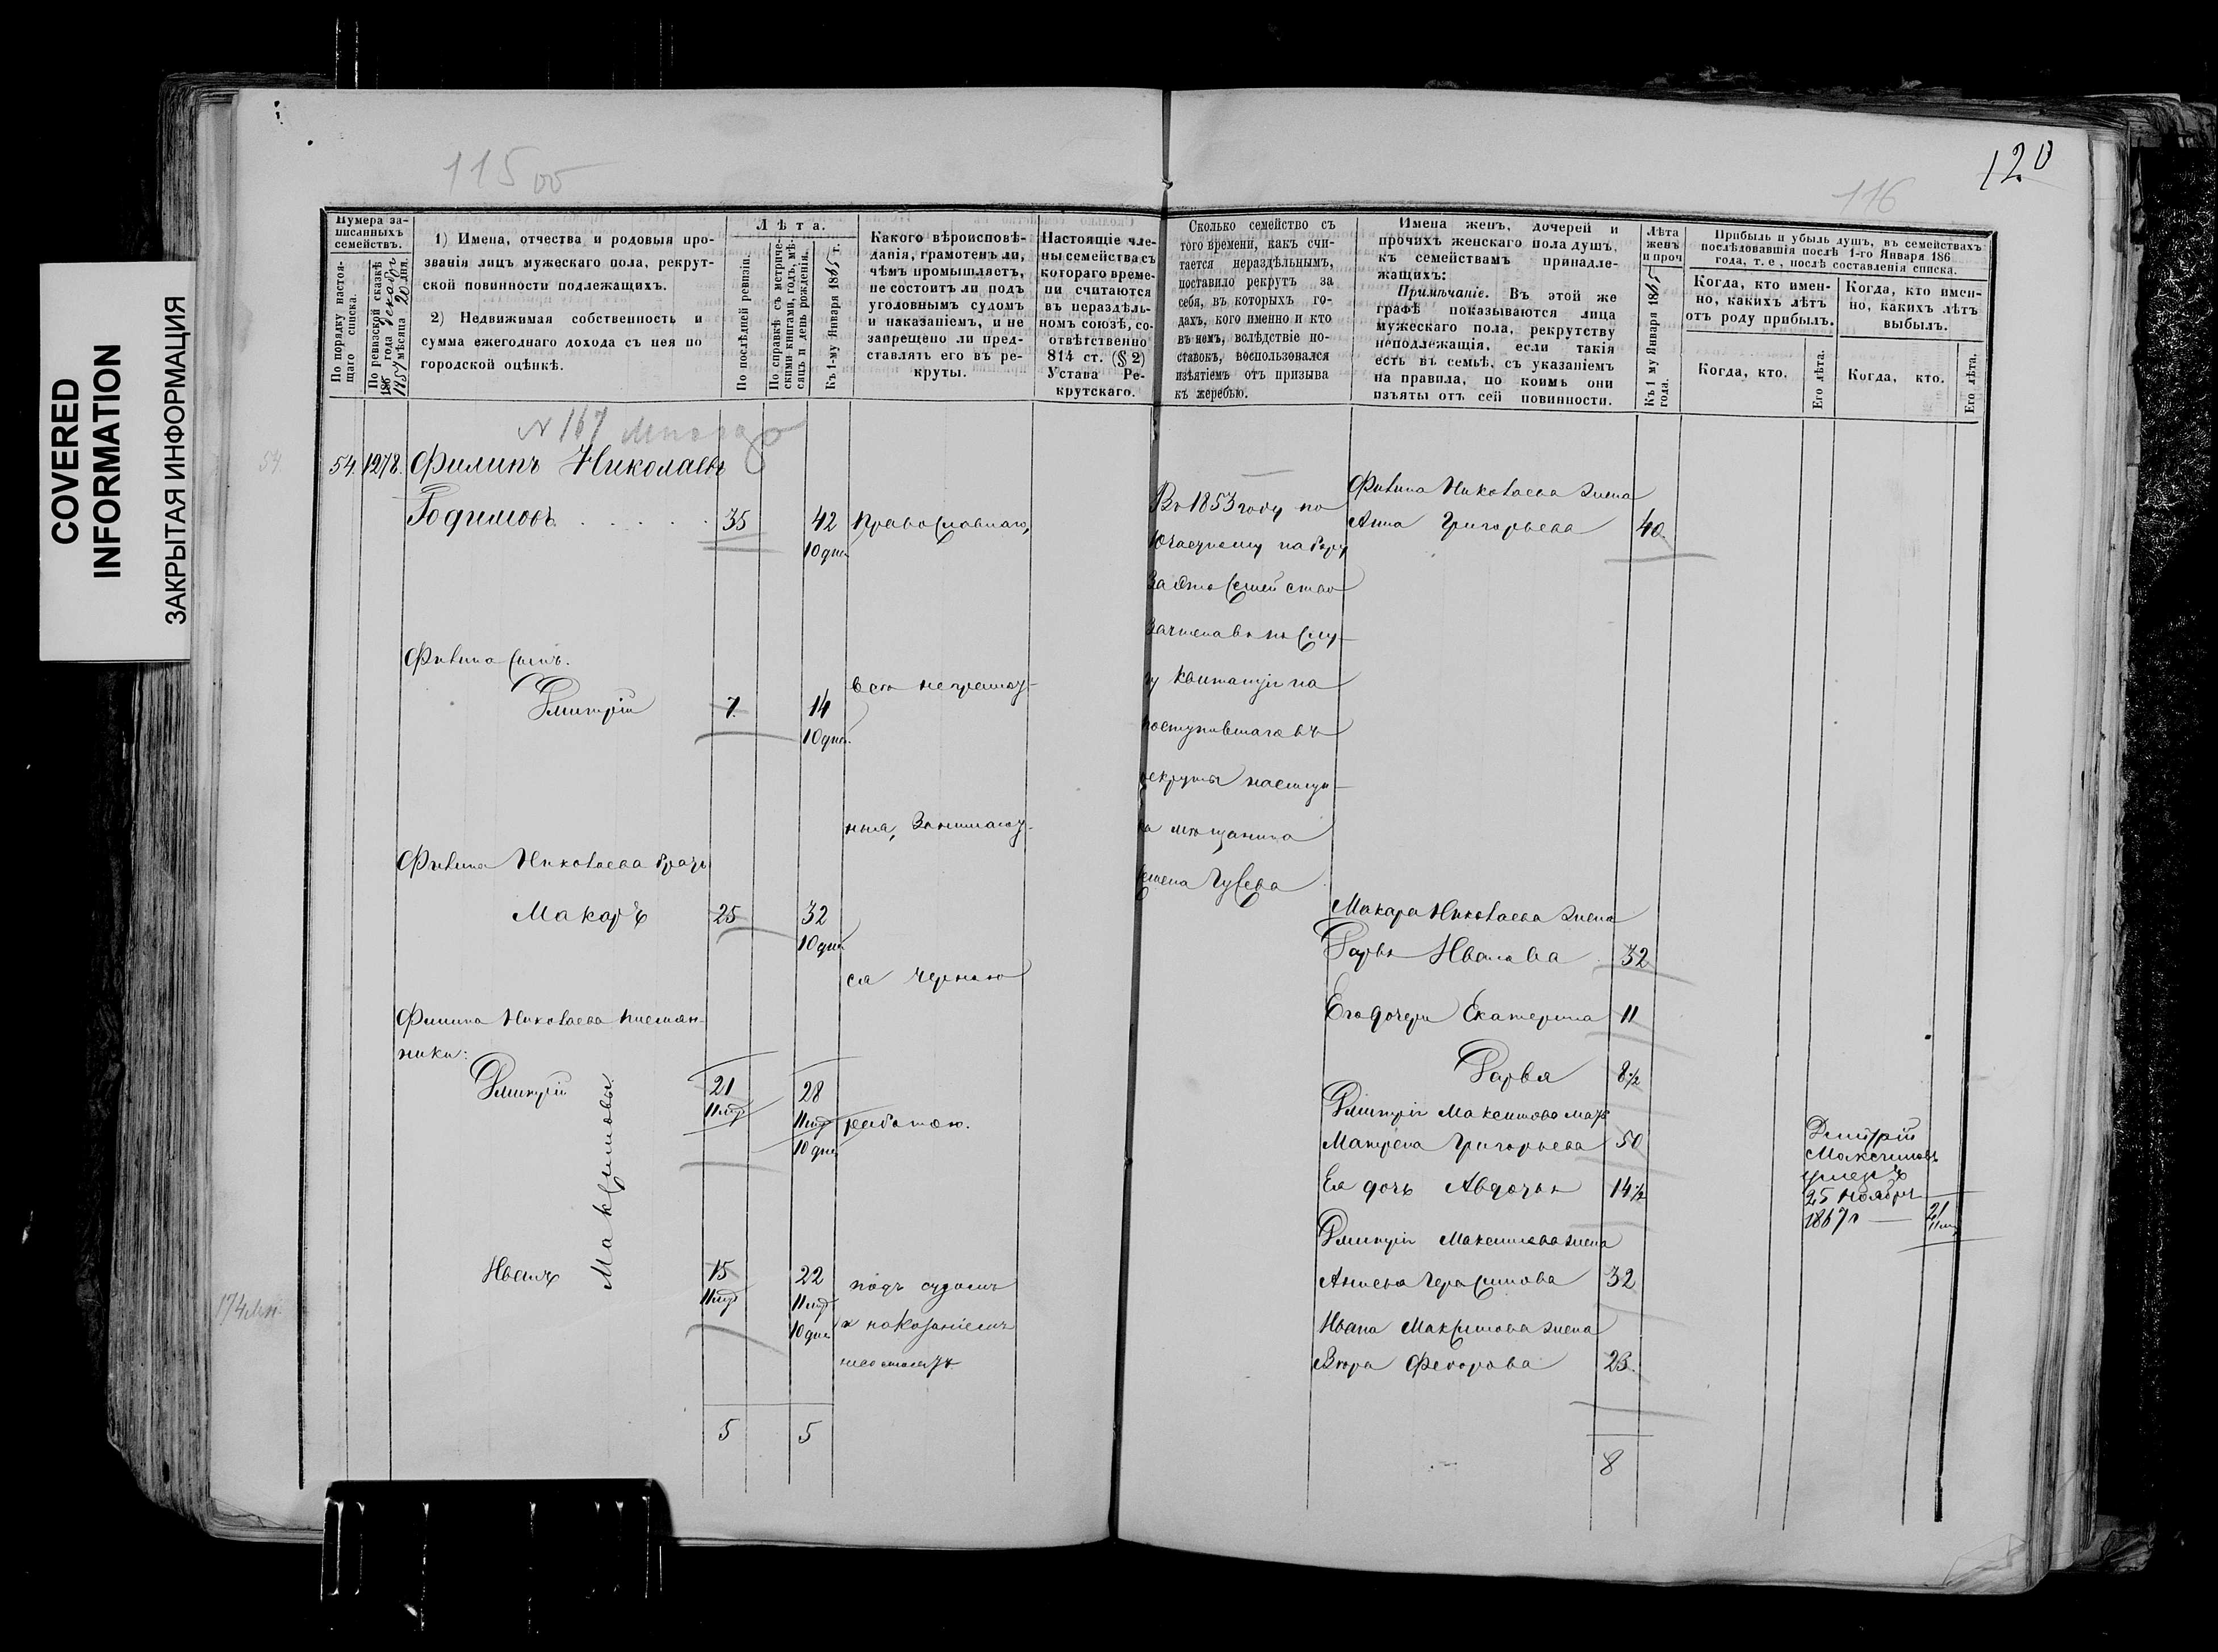 COVERED
INFORMATION
ЗАКРЫТАЯ ИНФОРМАЦИЯ
115 об
116
120
Нумера за-
писанныхъ
семействъ.
По порядку настоя-
щаго списка.
По ревизской сказкѣ
1857 года Декабря
мѣсяца 20 дня.
1) Имена, отчества и родовыя про-
званія лицъ мужескаго пола, рекрут-
ской повинности подлежащихъ.
2) Недвижимая собственность и
сумма ежегоднаго дохода съ нея по
городской оцѣнкѣ.
Лѣта.
По послѣдней ревизіи.
По справкѣ съ метриче-
скими книгами, годъ, мѣ-
сяцъ и день рожденія.
Къ 1-му Января 1865 г.
Какого вѣроисповѣ-
данія, грамотенъ ли,
чѣмъ промышляетъ,
не состоитъ ли подъ
уголовнымъ судомъ
и наказаніемъ, и не
запрещено ли пред-
ставлять его въ ре-
круты.
Настоящіе чле-
ны семейства съ
котораго време-
ни считаются
въ нераздѣль-
номъ союзѣ, со-
отвѣтственно
814 ст. (§ 2)
Устава Ре-
крутскаго.
Сколько семейство съ
того времени, какъ счи-
тается нераздѣльнымъ,
поставило рекрутъ за
себя, въ которыхъ го-
дахъ, кого именно и кто
въ немъ, вслѣдствіе по-
ставокъ, воспользовался
изъятіемъ отъ призыва
къ жеребью.
Имена женъ, дочерей и
прочихъ женскаго пола душъ,
къ семействамъ принадле-
жащихъ:
Примѣчаніе. Въ этой же
графѣ показываются лица
мужескаго пола, рекрутству
неподлежащія, если такія
есть въ семьѣ, съ указаніемъ
на правила, по коимъ они
изъяты отъ сей повинности.
Лѣта
женъ
и проч
Къ 1 му Января 1865
года.
Прибыль и убыль душъ, въ семействахъ
послѣдовавшія послѣ 1-го Января 186
года, т. е., послѣ составленія списка.
Когда, кто имен-
но, какихъ лѣтъ
отъ роду прибылъ.
Когда, кто имен-
но, какихъ лѣтъ
выбылъ.
Когда, кто.
Его лѣта.
Когда, кто.
Его лѣта.
N 167
54.
54. 1278. Филипъ Николаевъ
Родимовъ 35 42 Православнаго,
10 дней
Филипа сынъ.
Дмитрій 7. 14
10 дней
всѣ неграмот-
ные, Занимают-
Филипа Николаева братъ
Макаръ 25 32
10 дней
ся черною
Филипа Николаева племян-
ники:
Дмитрій 21 28
11 мѣс 11 мѣс работою.
10 дней
Максимовы
Иванъ 15 22 подъ судомъ
11 мѣс 11 мѣс и наказаніемъ
10 дней несостоятъ
174
5 5
Въ 1853 году по
10 частному набору
За это семейство
Зачтена въ
квитанція на
поступившаго въ
рекруты
мѣщанина
Семена Гусева
Филипа Николаева жена
Анна Григорьева 40
Макара Николаева жена
Дарья Иванова 32
Его дочери Екатерина 11
Дарья 8½
Дмитрія Максимова мать
Матрена Григорьева 50
Ея дочь Авдотья 14½
Дмитрія Максимова жена
Анисья Герасимова 32
Ивана Максимова жена
Федорова 23.
8
Дмитрій
Максимовъ
умеръ
25 Ноября
1867 г 21
11 мѣс